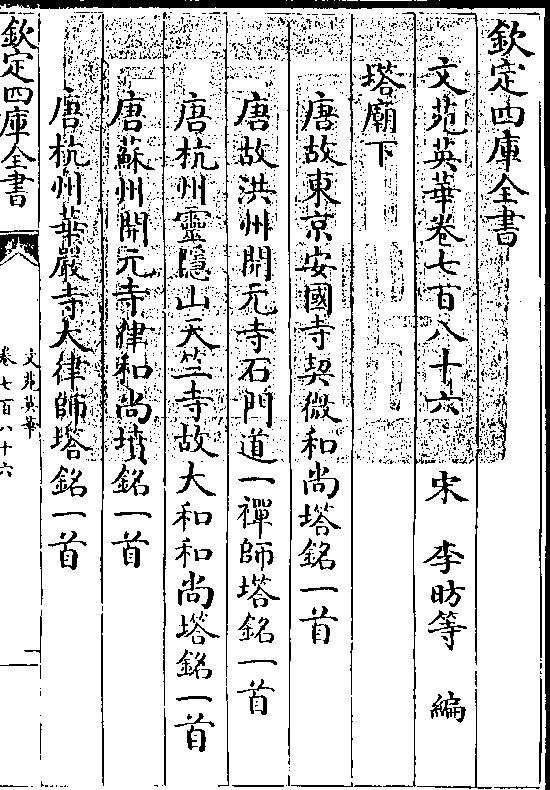 欽定四庫全書
文苑英華卷七百八十六 宋 李昉等 編
塔廟下
唐故東京安國寺契微和尚塔銘一首
唐故洪州開元寺石門道一禪師塔銘一首
唐杭州靈隱山天竺寺故大和和尚塔銘一首
唐蘇州開元寺律和尚墳銘一首
唐杭州華嚴寺大律師塔銘一首
欽定四庫全書
文苑英華
卷七百八十六
一